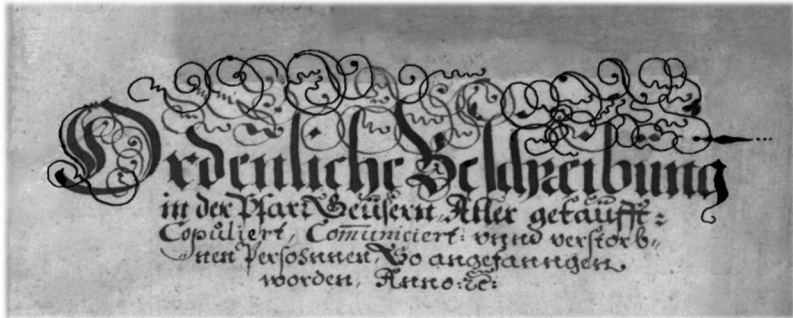 Ordenliche Beschreibung
in der Pfarr Geüsern, Aller getaufft=
Copuliert, Com̅uniciert: vnnd verstorb=
nen Persohnnen, So angefanngen
worden, Anno: ꝛc: